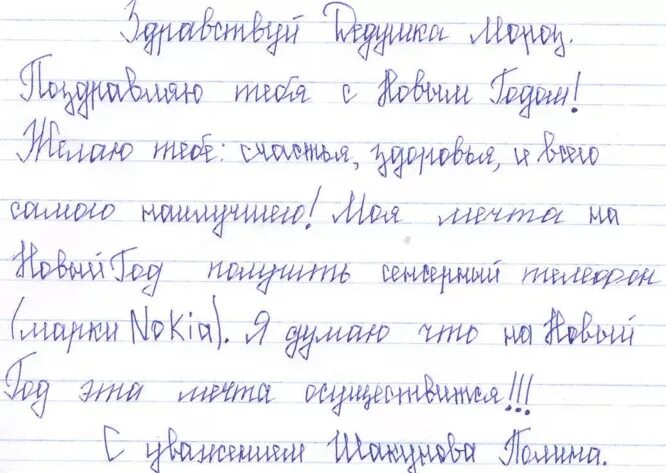 Здравствуй Дедушка Мороз.
Поздравляю тебя с Новым Годом!
Желаю тебе: счастья, здоровья, и всего
самого наилучшего! Моя мечта на
Новый Год получить сенсерный телефон
(марки Nokia). Я думаю что на Новый
Год эта мечта осуществится!!!
С уважением Шакунова Полина.